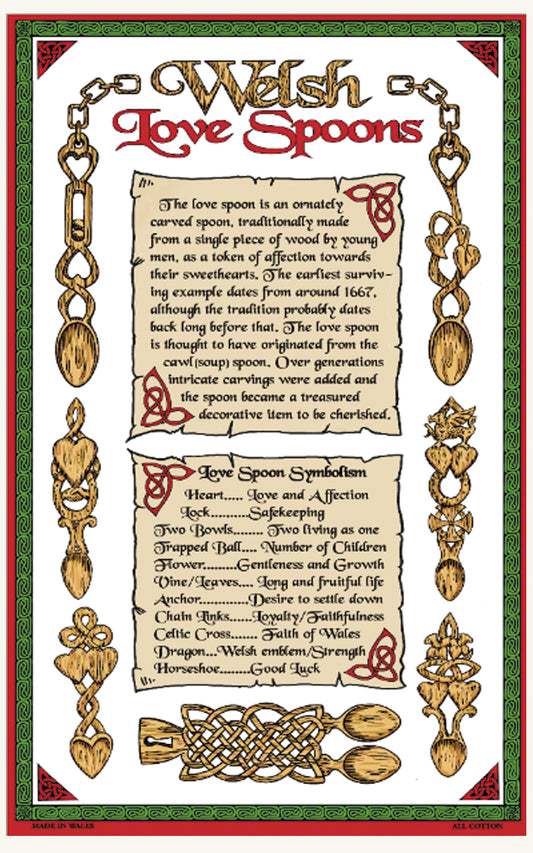 Welsh
Love Spoons
The love spoon is an ornately
carved spoon, traditionally made
from a single piece of wood by young
men, as a token of affection towards
their sweethearts. The earliest surviv-
ing example dates from around 1667,
although the tradition probably dates
back long before that. The love spoon
is thought to have originated from the
cawl(soup) spoon. Over generations
intricate carvings were added and
the spoon became a treasured
decorative item to be cherished.
Love Spoon Symbolism
Heart..... Love and Affection
Lock..........Safekeeping
Two Bowls........ Two living as one
Trapped Ball.... Number of Children
Flower.........Gentleness and Growth
Vine/Leaves.... Long and fruitful life
Anchor..............Desire to settle down
Chain Links......Loyalty/Faithfulness
Celtic Cross....... Faith of Wales
Dragon...Welsh emblem/Strength
Horseshoe........Good Luck
MADE IN WALES
ALL COTTON